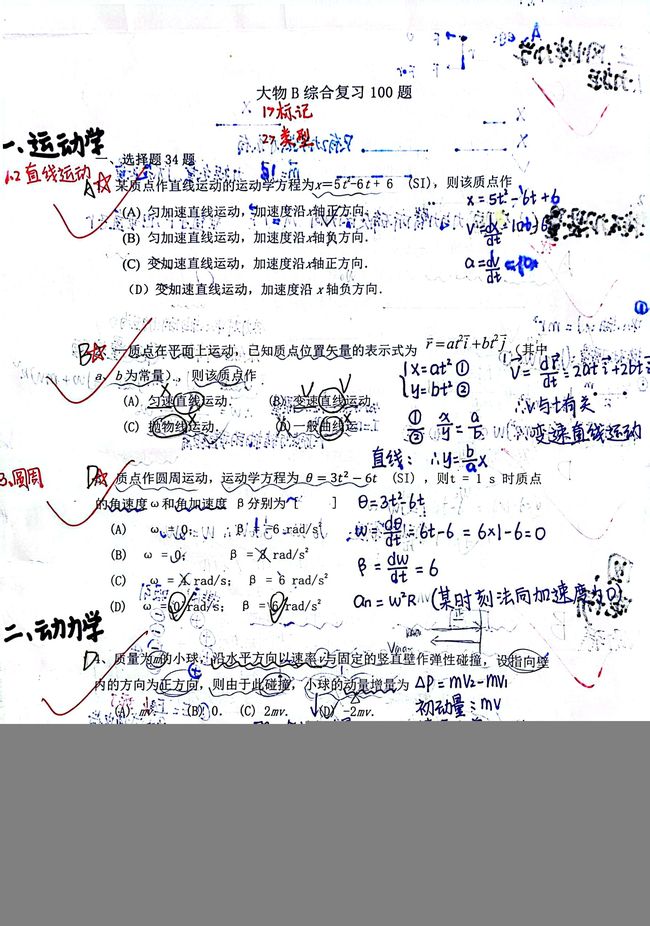 大物B综合复习100题
1>标记
2>类型
一、运动学
一、选择题34题
1.2直线运动
A☆某质点作直线运动的运动学方程为x=5t²-6t+6 (SI)，则该质点作
(A) 匀加速直线运动，加速度沿x轴正方向.
(B) 匀加速直线运动，加速度沿x轴负方向.
(C) 变加速直线运动，加速度沿x轴正方向.
(D)变加速直线运动，加速度沿x轴负方向.
x=5t²-6t+6
v=dx/dt=10t-6
a=dv/dt=10
B☆ 一质点在平面上运动，已知质点位置矢量的表示式为 r=at²i+bt²j (其中
a、b为常量)，则该质点作
(A) 匀速直线运动. (B) 变速直线运动.
(C) 抛物线运动. (D)一般曲线运
{x=at² ①
y=bt² ②
①/② x/y=a/b
直线：∴y=b/a x
v=dr/dt=2at i+2bt j
∴v与t有关
变速直线运动
3.圆周
D☆ 质点作圆周运动，运动学方程为 θ=3t²-6t (SI)，则t=1 s 时质点
的角速度ω和角加速度 β分别为 [ ]
(A) ω=0; β=-6 rad/s²
(B) ω=0; β=3 rad/s²
(C) ω=4 rad/s; β=6 rad/s²
(D) ω=0 rad/s; β=6 rad/s²
θ=3t²-6t
w=dθ/dt=6t-6=6×1-6=0
β=dw/dt=6
an=w²R (某时刻法向加速度为0)
二、动力学
D 4、质量为m的小球，沿水平方向以速率v与固定的竖直壁作弹性碰撞，设指向壁
内的方向为正方向，则由于此碰撞，小球的动量增量为
(A) mv. (B) 0. (C) 2mv. (D) -2mv.
ΔP=mv2-mv1
初动量：mv